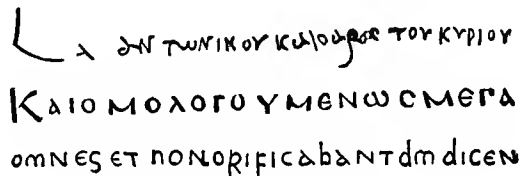 L α αντωνινου καισαρος του κυριου
ΚΑΙΟΜΟΛΟΓΟΥΜΕΝΩϹΜΕΓΑ
omnes et honorificabant dm dicen